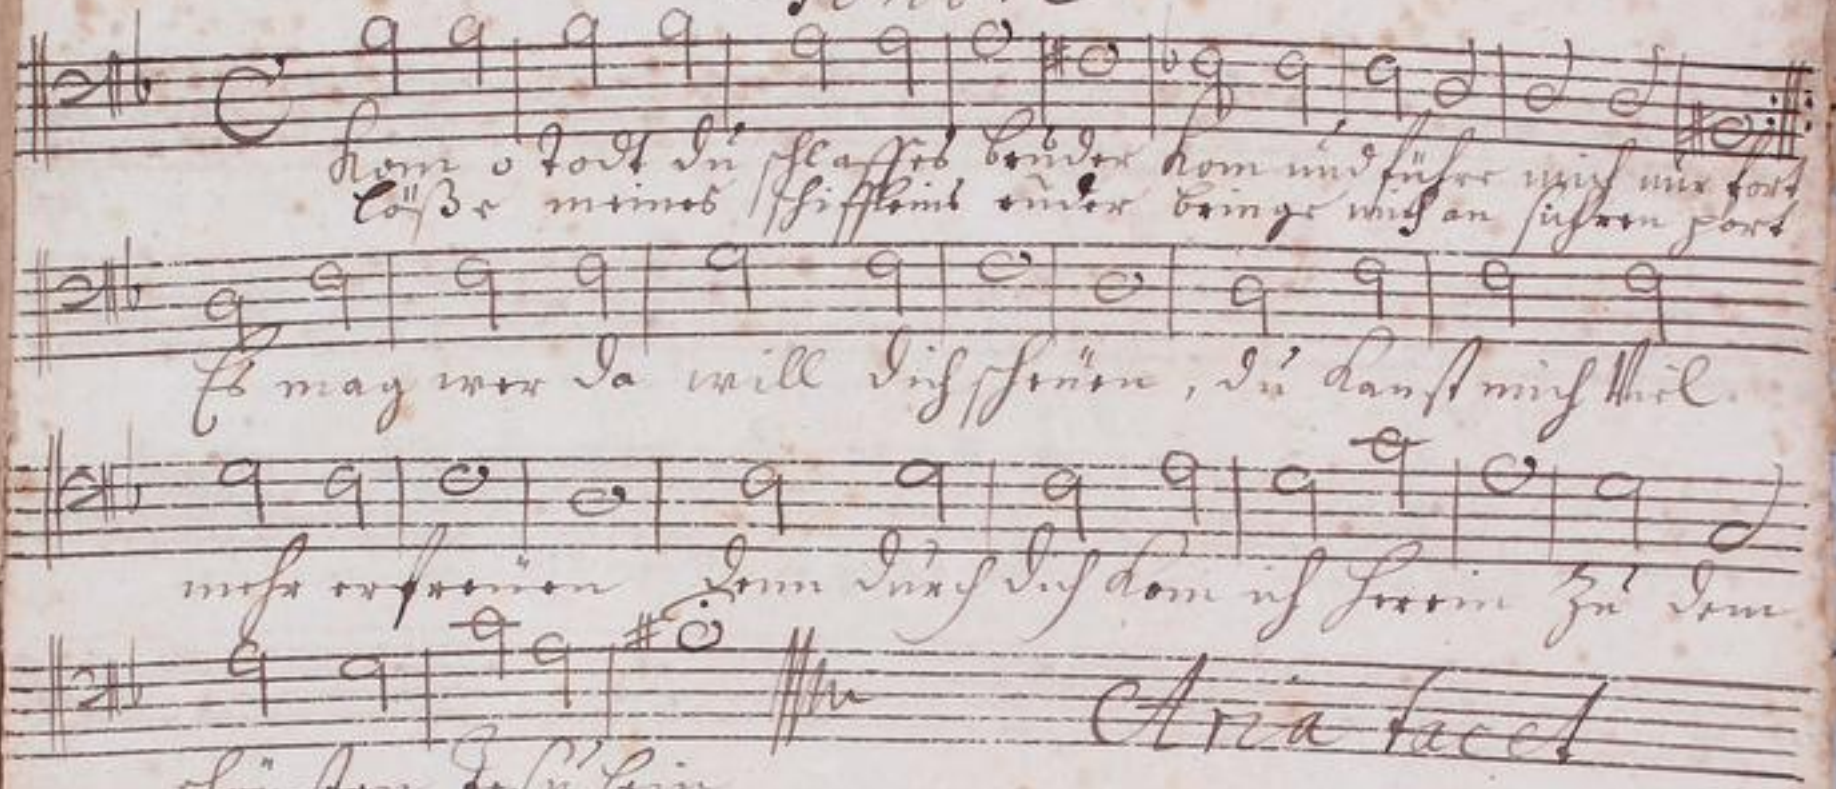 Kom o Todt du schlaffes bruder Kom und führe mich nur fort
löße meines schiffleins ruder bringe mich an sichren port
Es mag wer da will dich scheuen, du kanst mich Viel
mehr erfreuen denn durch dich kom ich herein Zu dem
schönsten Jesulein
Aria tacet